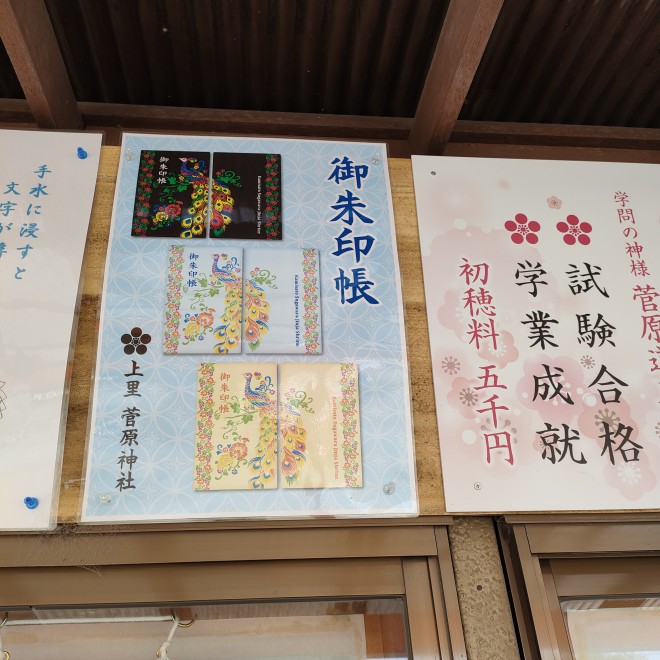 手水に浸すと
文字が
御朱印帳
御朱印帳
Kamisato Sugawara Jinja Shrine
御朱印帳
Kamisato Sugawara Jinja Shrine
御朱印帳
Kamisato Sugawara Jinja Shrine
上里 菅原神社
学問の神様 菅原
試験合格
学業成就
初穂料 五千円